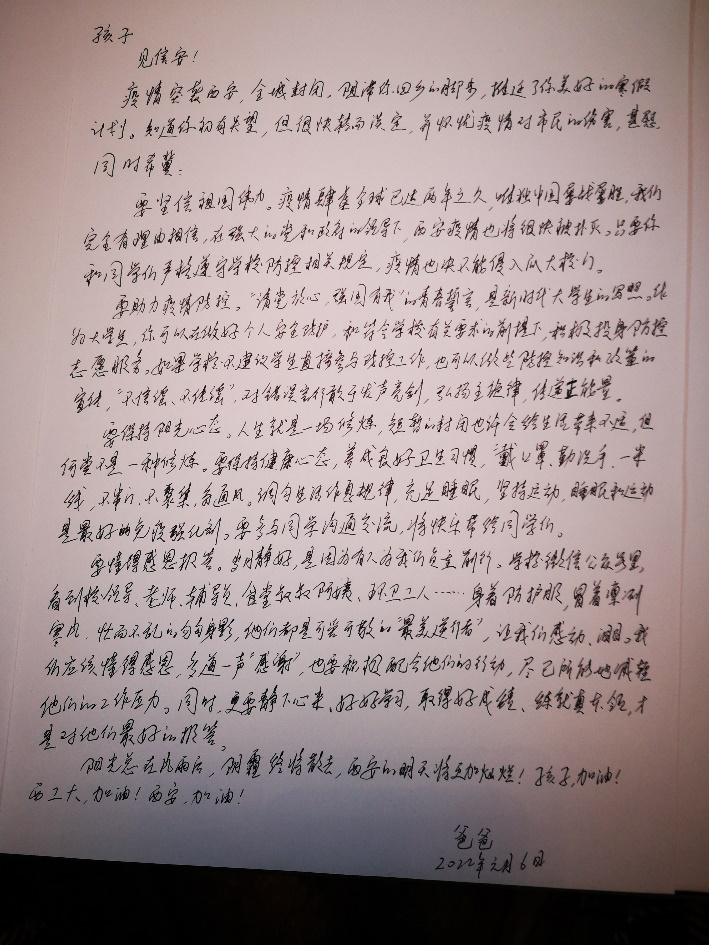 孩子
见信安！
疫情突袭西安，全城封闭，阻滞你回乡的脚步，推迟了你美好的寒假
计划。知道你初有失望，但很快转而淡定，并怀忧疫情对市民的伤害，甚慰，
同时希冀：
要坚信祖国伟力。疫情肆虐全球已达两年之久，唯独中国屡战屡胜，我们
完全有理由相信，在强大的党和政府的领导下，西安疫情也将很快被扑灭。只要你
和同学们严格遵守学校防控相关规定，疫情也决不能侵入瓜大校门。
要助力疫情防控。“请党放心，强国有我”的青春誓言，是新时代大学生的写照。作
为大学生，你可以在做好个人安全防护，和符合学校有关要求的前提下，积极投身防控
志愿服务。如果学校不建议学生直接参与防控工作，也可以做些防控知识和政策的
宣传，“不信谣、不传谣”，对错误言行敢于发声亮剑，弘扬主旋律，传递正能量。
要保持阳光心态。人生就是一场修炼，短暂的封闭也许会给生活带来不适，但
何尝不是一种修炼。要保持健康心态，养成良好卫生习惯，“戴口罩、勤洗手、一米
线，不串门、不聚集、多通风。调匀生活作息规律，充足睡眠，坚持运动，睡眠和运动
是最好的免疫强化剂。要多与同学沟通交流，将快乐带给同学们。
要懂得感恩报答。岁月静好，是因为有人为我们负重前行。学校微信公众号里，
看到校领导、老师、辅导员、食堂叔叔阿姨、环卫工人……身着防护服，冒着凛冽
寒风，忙而不乱的匆匆身影，他们都是可亲可敬的“最美逆行者”，让我们感动、泪目。我
们应该懂得感恩，多道一声“感谢”，也要积极配合他们的行动，尽己所能地减轻
他们的工作压力。同时，更要静下心来、好好学习，取得好成绩、练就真本领，才
是对他们最好的报答。
阳光总在风雨后，阴霾终将散去，西安的明天将更加灿烂！孩子，加油！
西工大，加油！西安，加油！
爸爸
2022年元月6日